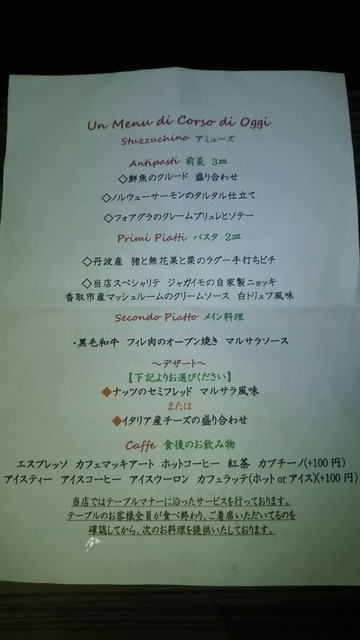 Un Menu di Corso di Oggi
Stuzzuchino アミューズ
Antipasti 前菜 3皿
◇鮮魚のクルード 盛り合わせ
◇ノルウェーサーモンのタルタル仕立て
◇フォアグラのクレームブリュレとソテー
Primi Piatti パスタ 2皿
◇丹波産 猪と無花果と栗のラグー手打ちピチ
◇当店スペシャリテ ジャガイモの自家製ニョッキ
香取市産マッシュルームのクリームソース 白トリュフ風味
Secondo Piatto メイン料理
・黒毛和牛 フィレ肉のオーブン焼き マルサラソース
～デザート～
【下記よりお選びください】
◆ナッツのセミフレッド マルサラ風味
または
◆イタリア産チーズの盛り合わせ
Caffe 食後のお飲み物
エスプレッソ カフェマッキアート ホットコーヒー 紅茶 カプチーノ(+100円)
アイスティー アイスコーヒー アイスウーロン カフェラッテ(ホットorアイス)(+100円)
当店ではテーブルマナーに沿ったサービスを行っております。
テーブルのお客様全員が食べ終わり、ご着席いただいてるのを
確認してから、次のお料理を提供いたしております。